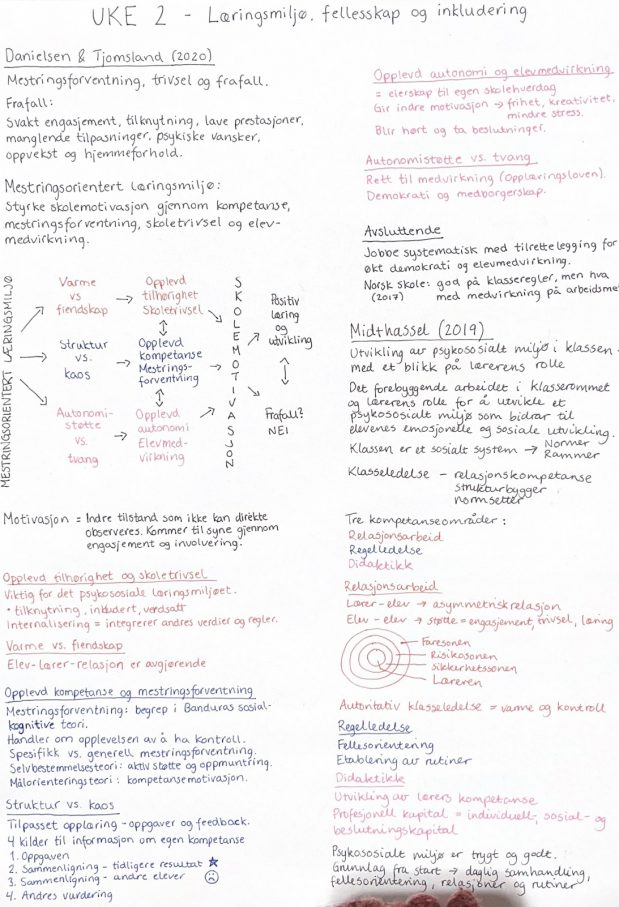 UKE 2 - Læringsmiljø, fellesskap og inkludering
Danielsen & Tjomsland (2020)
Mestringsforventning, trivsel og frafall.
Frafall:
Svakt engasjement, tilknytning, lave prestasjoner,
manglende tilpasninger, psykiske vansker,
oppvekst og hjemmeforhold.
Mestringsorientert læringsmiljø:
Styrke skolemotivasjon gjennom kompetanse,
mestringsforventning, skoletrivsel og elev-
medvirkning.
MESTRINGSORIENTERT LÆRINGSMILJØ
Varme
vs
fiendskap
Opplevd
tilhørighet
Skoletrivsel
Struktur
vs.
kaos
Opplevd
kompetanse
Mestrings-
forventning
Autonomi-
støtte
vs.
tvang
Opplevd
autonomi
Elevmed-
virkning
SKOLEMOTIVASJON
Positiv
læring
og
utvikling
Frafall?
NEI
Motivasjon = Indre tilstand som ikke kan direkte
observeres. Kommer til syne gjennom
engasjement og involvering.
Opplevd tilhørighet og skoletrivsel
Viktig for det psykososiale læringsmiljøet.
• tilknytning, inkludert, verdsatt
Internalisering = integrerer andres verdier og regler.
Varme vs. fiendskap
Elev-lærer-relasjon er avgjørende
Opplevd kompetanse og mestringsforventning
Mestringsforventning: begrep i Banduras sosial-
kognitive teori.
Handler om opplevelsen av å ha kontroll.
Spesifikk vs. generell mestringsforventning.
Selvbestemmelsesteori: aktiv støtte og oppmuntring.
Målorienteringsteori: kompetansemotivasjon.
Struktur vs. kaos
Tilpasset opplæring - oppgaver og feedback.
4 kilder til informasjon om egen kompetanse
1. Oppgaven
2. Sammenligning - tidligere resultat
3. Sammenligning - andre elever
4. Andres vurdering
Opplevd autonomi og elevmedvirkning
= eierskap til egen skolehverdag
Gir indre motivasjon → frihet, kreativitet,
mindre stress.
Blir hørt og ta beslutninger.
Autonomistøtte vs. tvang
Rett til medvirkning (Opplæringsloven).
Demokrati og medborgerskap.
Avsluttende
Jobbe systematisk med tilrettelegging for
økt demokrati og elevmedvirkning.
Norsk skole: god på klasseregler, men hva
(2017) med medvirkning på arbeidsme
Midthassel (2019)
Utvikling av psykososialt miljø i klassen -
med et blikk på lærerens rolle
Det forebyggende arbeidet i klasserommet
og lærerens rolle for å utvikle et
psykososialt miljø som bidrar til
elevenes emosjonelle og sosiale utvikling.
Klassen er et sosialt system → Normer
Rammer
Klasseledelse - relasjonskompetanse
strukturbygger
normsetter
Tre kompetanseområder:
Relasjonsarbeid
Regelledelse
Didaktikk
Relasjonsarbeid
Lærer-elev → asymmetrisk relasjon
Elev-elev → støtte = engasjement, trivsel, læring
Faresonen
Risikosonen
Sikkerhetssonen
Læreren
Autoritativ klasseledelse = varme og kontroll
Regelledelse
Fellesorientering
Etablering av rutiner
Didaktikk
Utvikling av lærers kompetanse
Profesjonell kapital = individuell-, sosial- og
beslutningskapital
Psykososialt miljø er trygt og godt.
Grunnlag fra start → daglig samhandling,
fellesorientering, relasjoner og rutiner